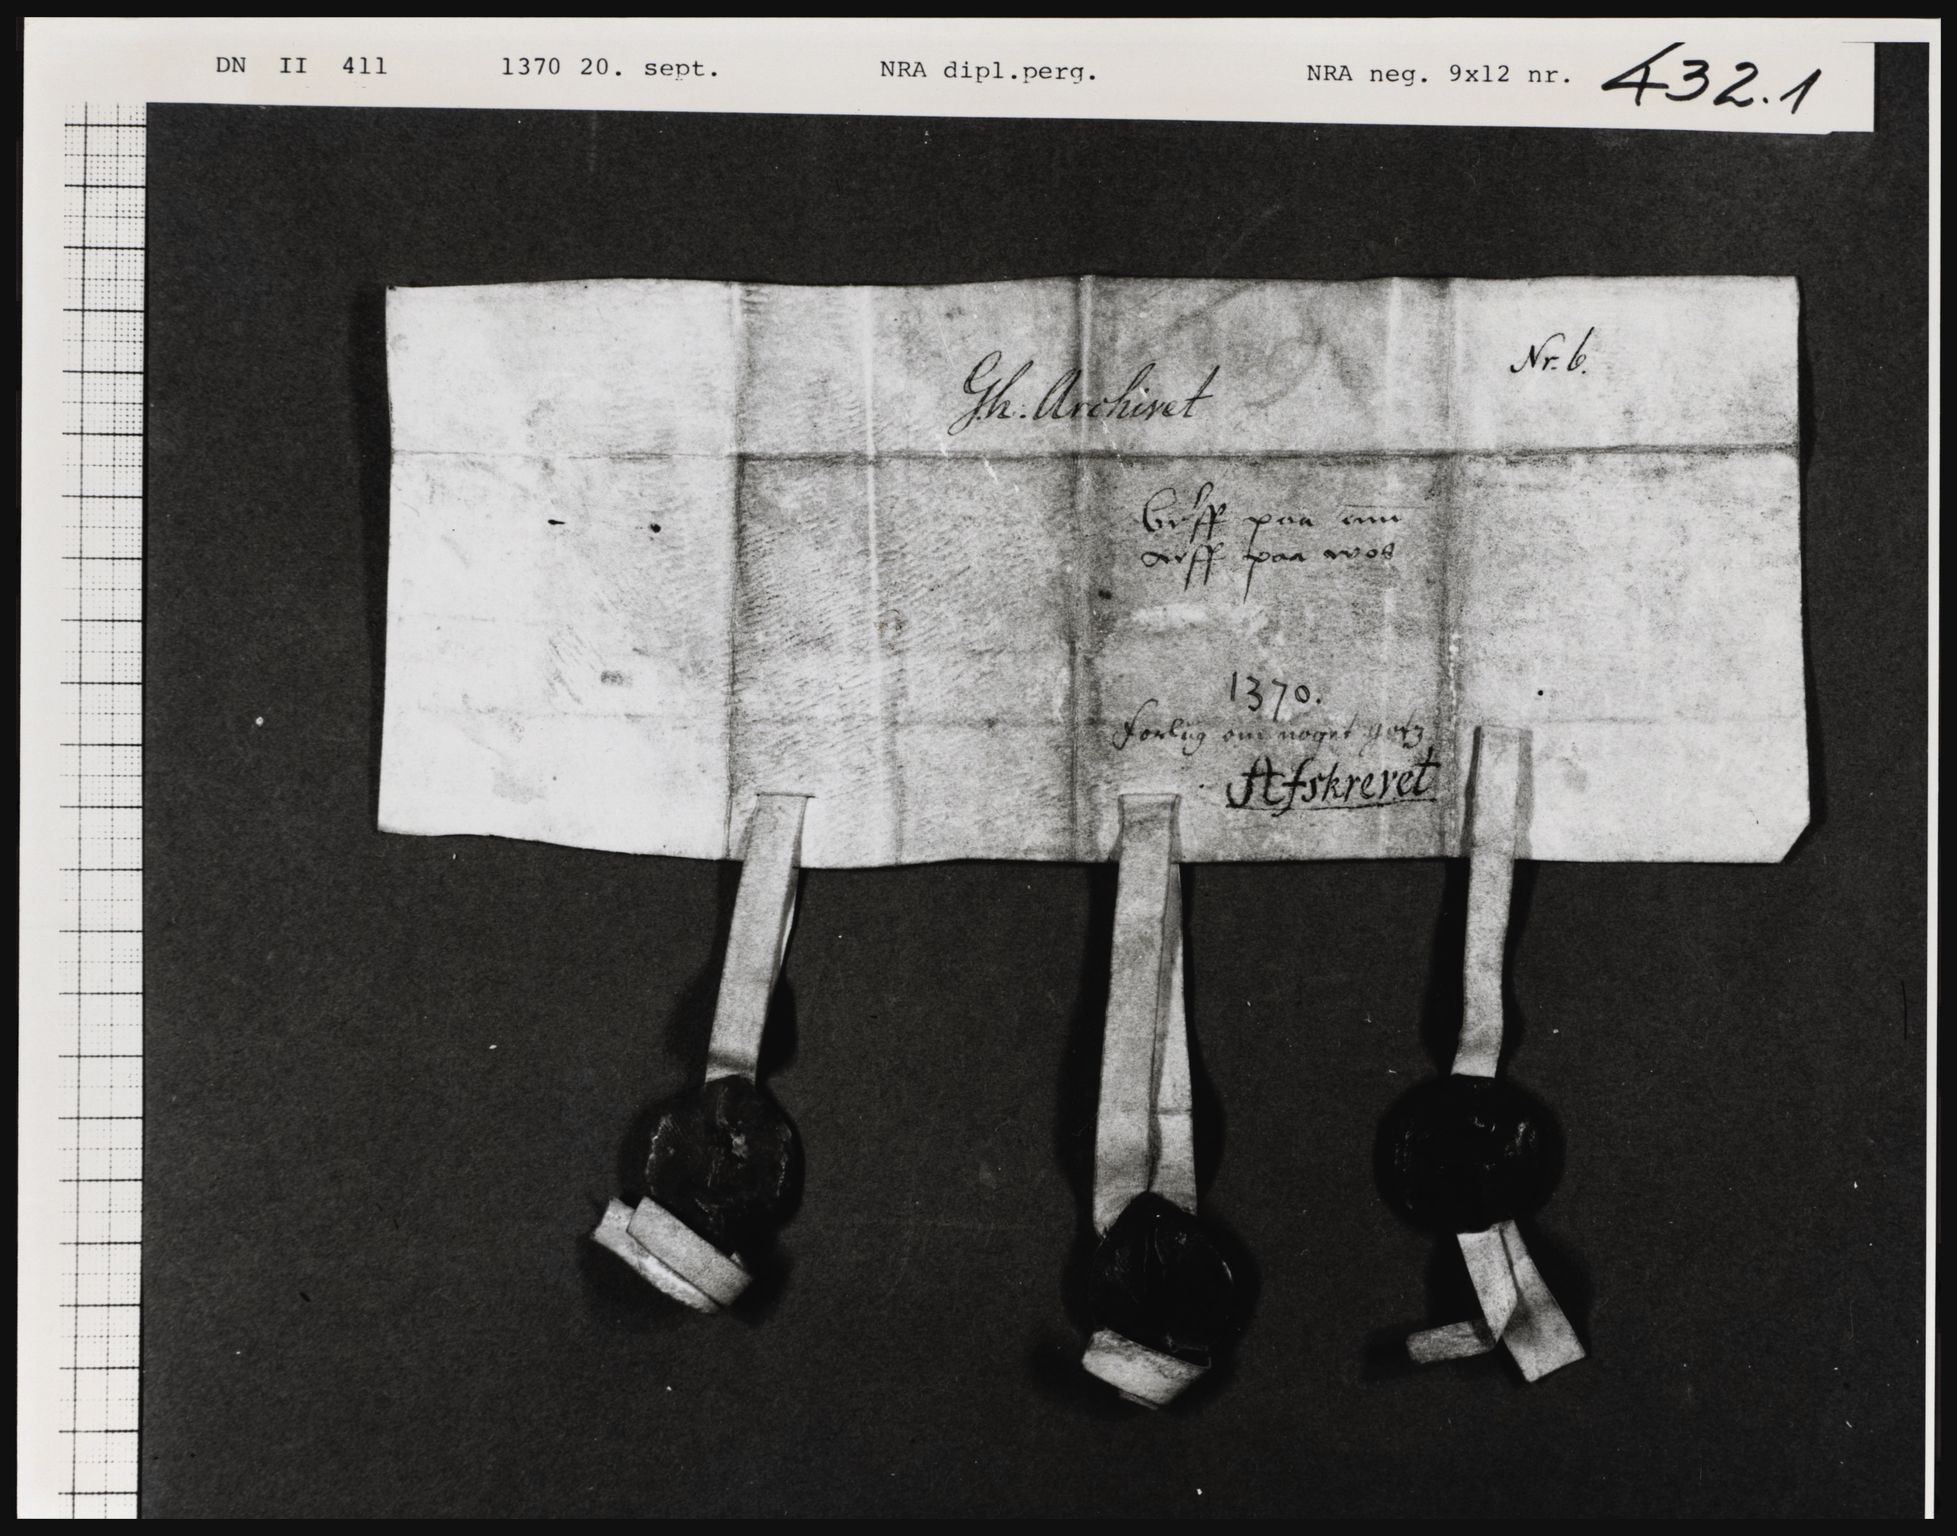 DN II 411 1370 20. sept. NRA dipl.perg. NRA neg. 9x12 nr. 432.1
Nr. 6.
Gh. Archivet
breff paa
arff paa
1370.
Forlig om noget
Afskrevet